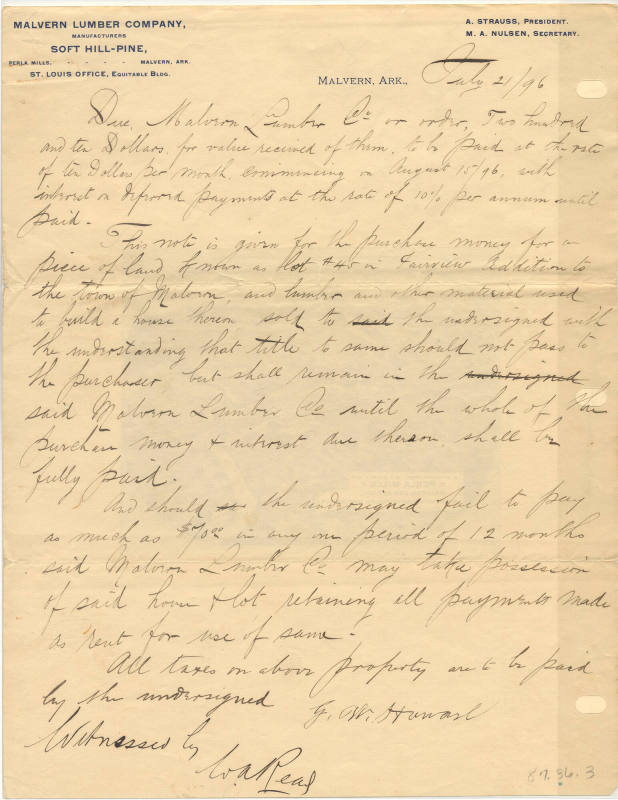 MALVERN LUMBER COMPANY,
MANUFACTURERS
SOFT HILL-PINE,
PERLA MILLS, - - - - MALVERN, ARK.
ST. LOUIS OFFICE, EQUITABLE BLDG.
A. STRAUSS, PRESIDENT.
M. A. NULSEN, SECRETARY.
MALVERN, ARK., July 21/96
Due, Malvern Lumber Co or order, Two hundred
and ten Dollars, for value received of them, to be paid at the rate
of ten Dollars per month, commencing on August 15/96, with
interest on deferred payments at the rate of 10% per annum until
paid.-
This note is given for the purchase money for a
piece of land known as Lot #45 in Fairview Addition to
the town of Malvern, and lumber and other material used
to build a house thereon sold to said the undersigned with
the understanding that title to same should not pass to
the purchaser but shall remain in the undersigned
said Malvern Lumber Co until the whole of the
purchase money & interest due thereon, shall be
fully paid.
And should the undersigned fail to pay
as much as $70.00 in any one period of 12 months
said Malvern Lumber Co may take possession
of said house & lot retaining all payments made
as rent for use of same.-
All taxes on above property are to be paid
by the undersigned
G. W. Howard
Witnessed by
W. A. Read
87.36.3